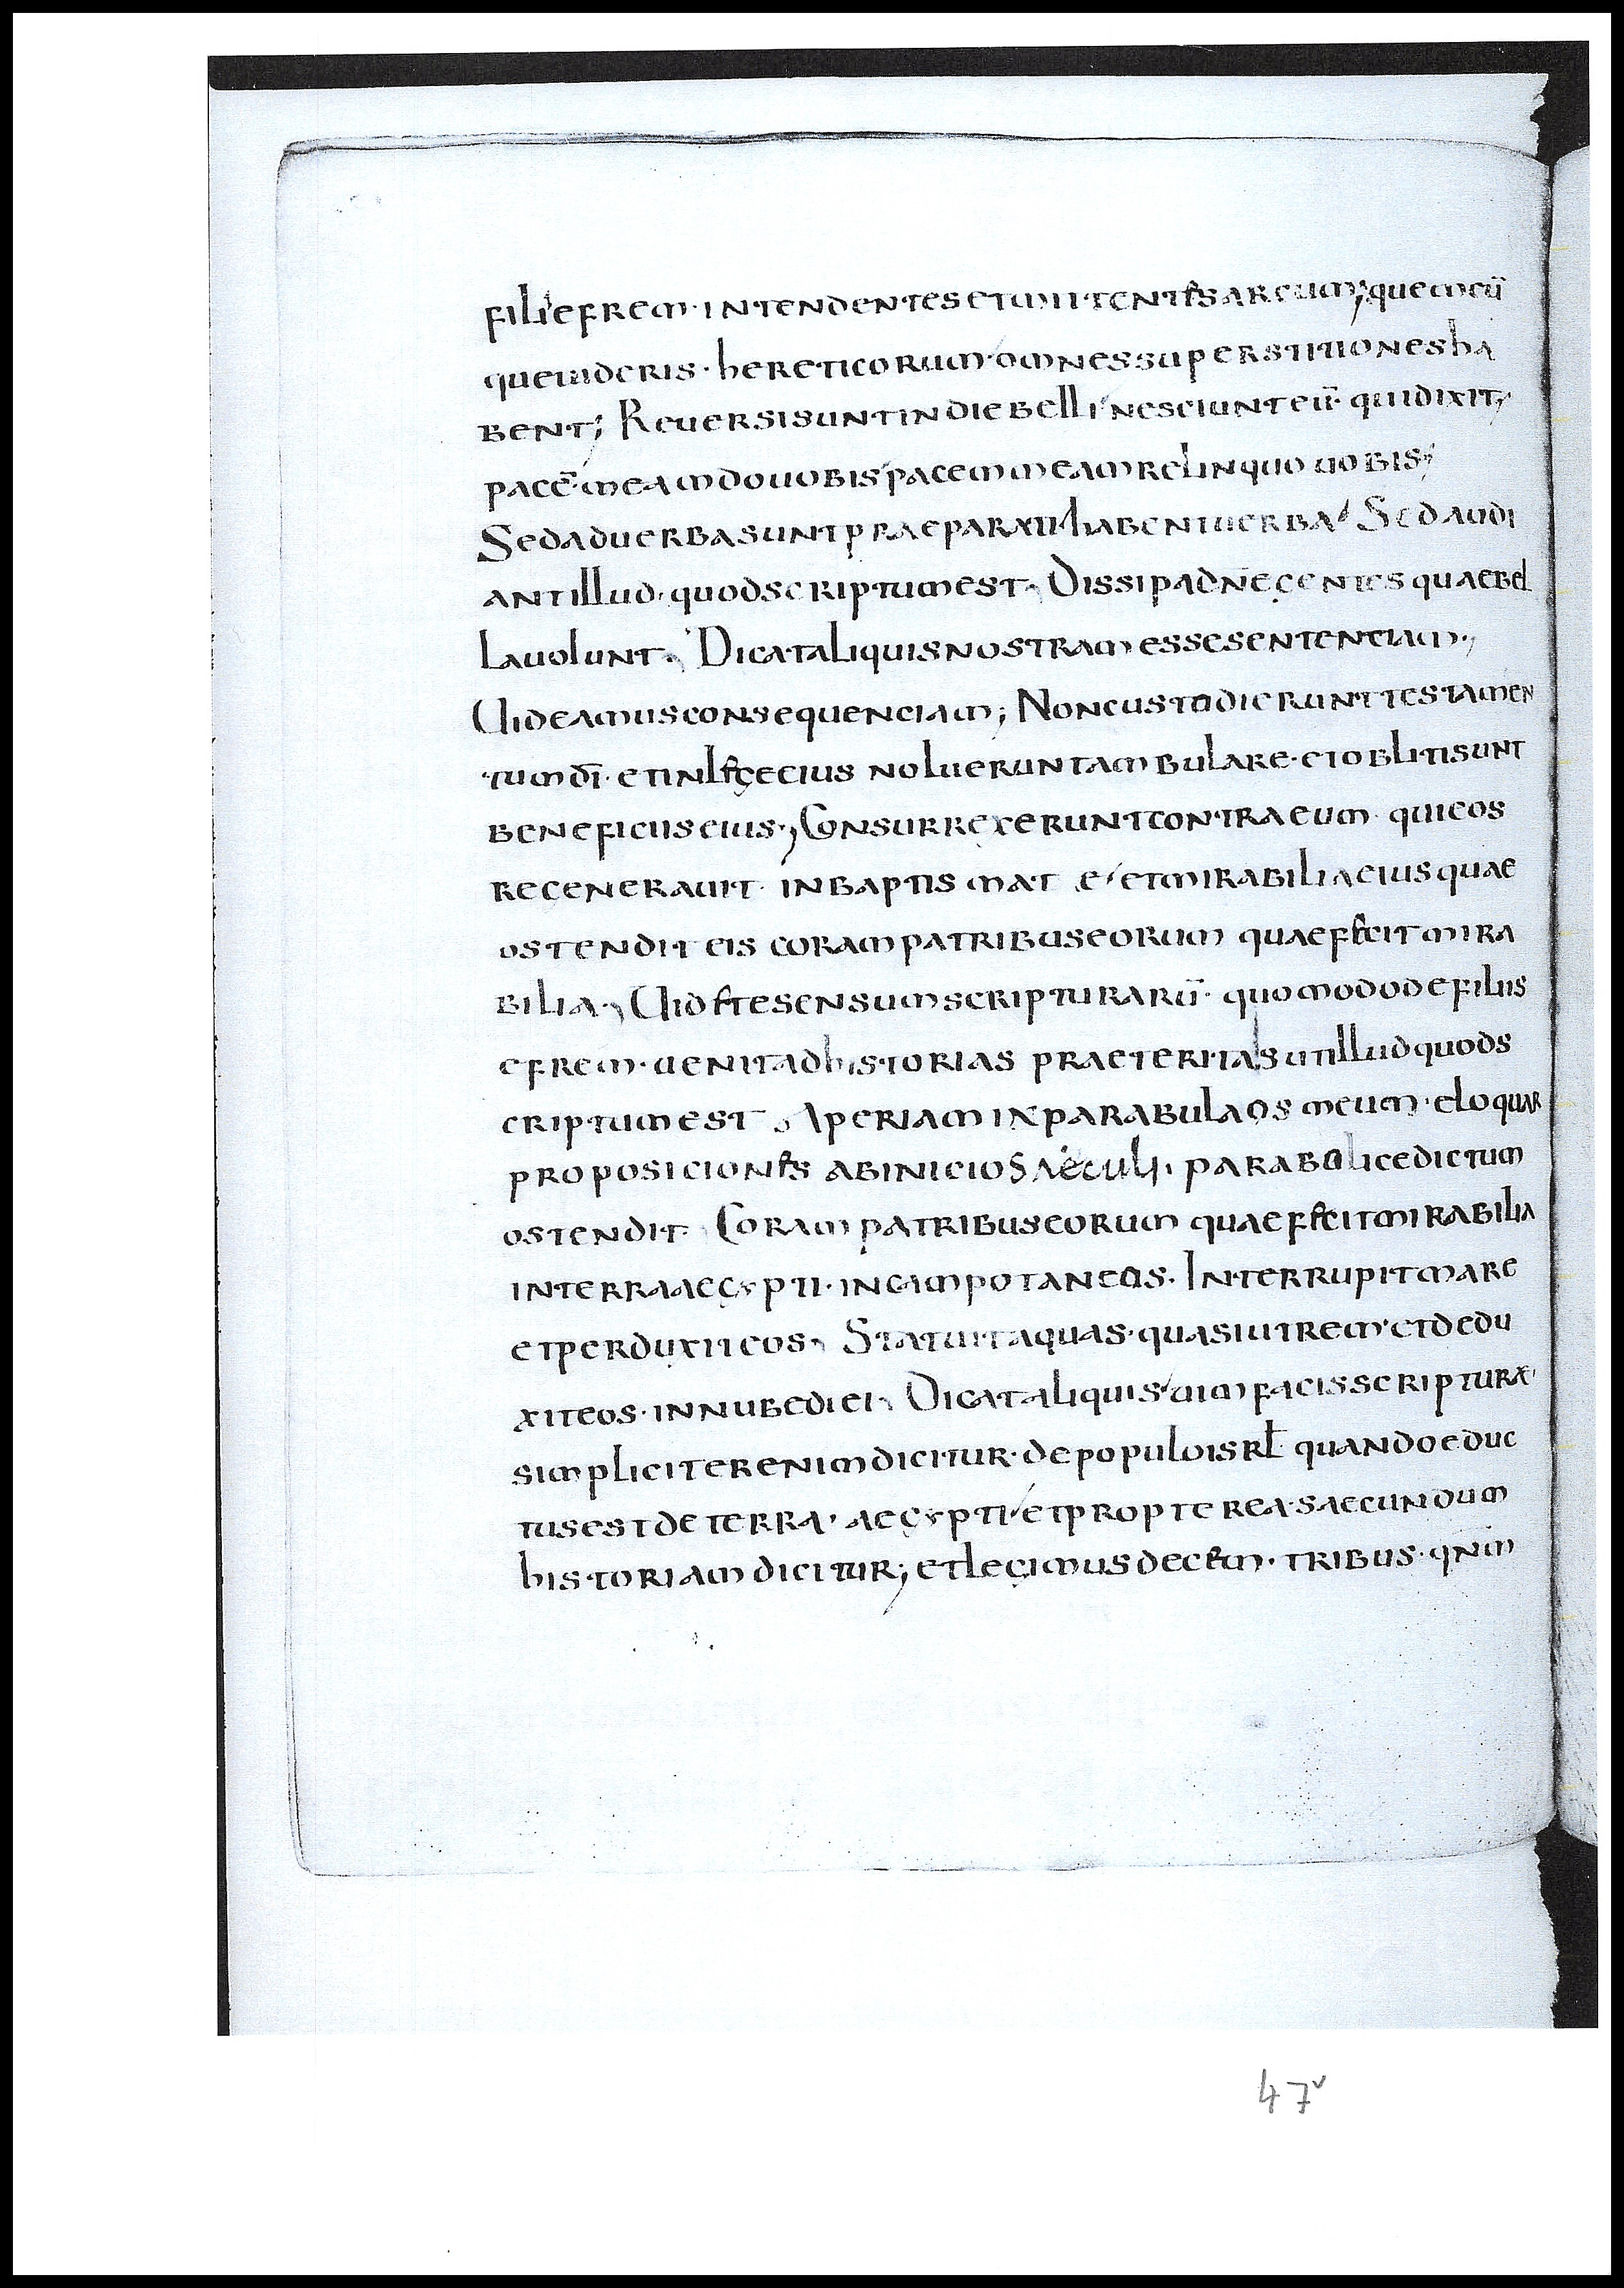 fili efrem · intendentes et mittentes arcum; quemcū
que uideris · hereticorum · omnes superstitiones ha
bent; Reuersi sunt in die belli nesciunt eū · qui dixit;
pacē · meam do uobis pacem meam relinquo uobis;
Sed ad uerba sunt praeparati habent uerba Sed audi
ant illud · quod scriptum est · Dissipa dn̄e gentes quae bel
la uolunt · Dicat aliquis nostram esse sentenciam ·,
Uideamus consequenciam; Non custodierunt testamen
tum dī · et in lege eius noluerunt ambulare · et obliti sunt
beneficiis eius ·, Consurrexerunt contra eum · qui eos
regenerauit · in baptismat e et mirabilia eius quae
ostendit eis coram patribus eorum quae fecit mira
bilia · Uidete sensum scripturarū · quomodo de filiis
efrem · uenit ad historias praeteritas ut illud quod s
criptum est · Aperiam in parabula os meum · eloquar
proposiciones ab inicio saeculi · parabolice dictum
ostendit · Coram patribus eorum quae fecit mirabilia
in terra aegypti · in campo taneos · Interrupit mare
et perduxit eos · Statuit aquas · quasi utrem · et dedu
xit eos · in nube diei · Dicat aliquis uim facis scripturae ·
simpliciter enim dicitur · de populo isrl̄ quando educ
tus est de terra · aegypti et propterea · saecundum
historiam dicitur; et legimus decem · tribus · qn̄m
47v